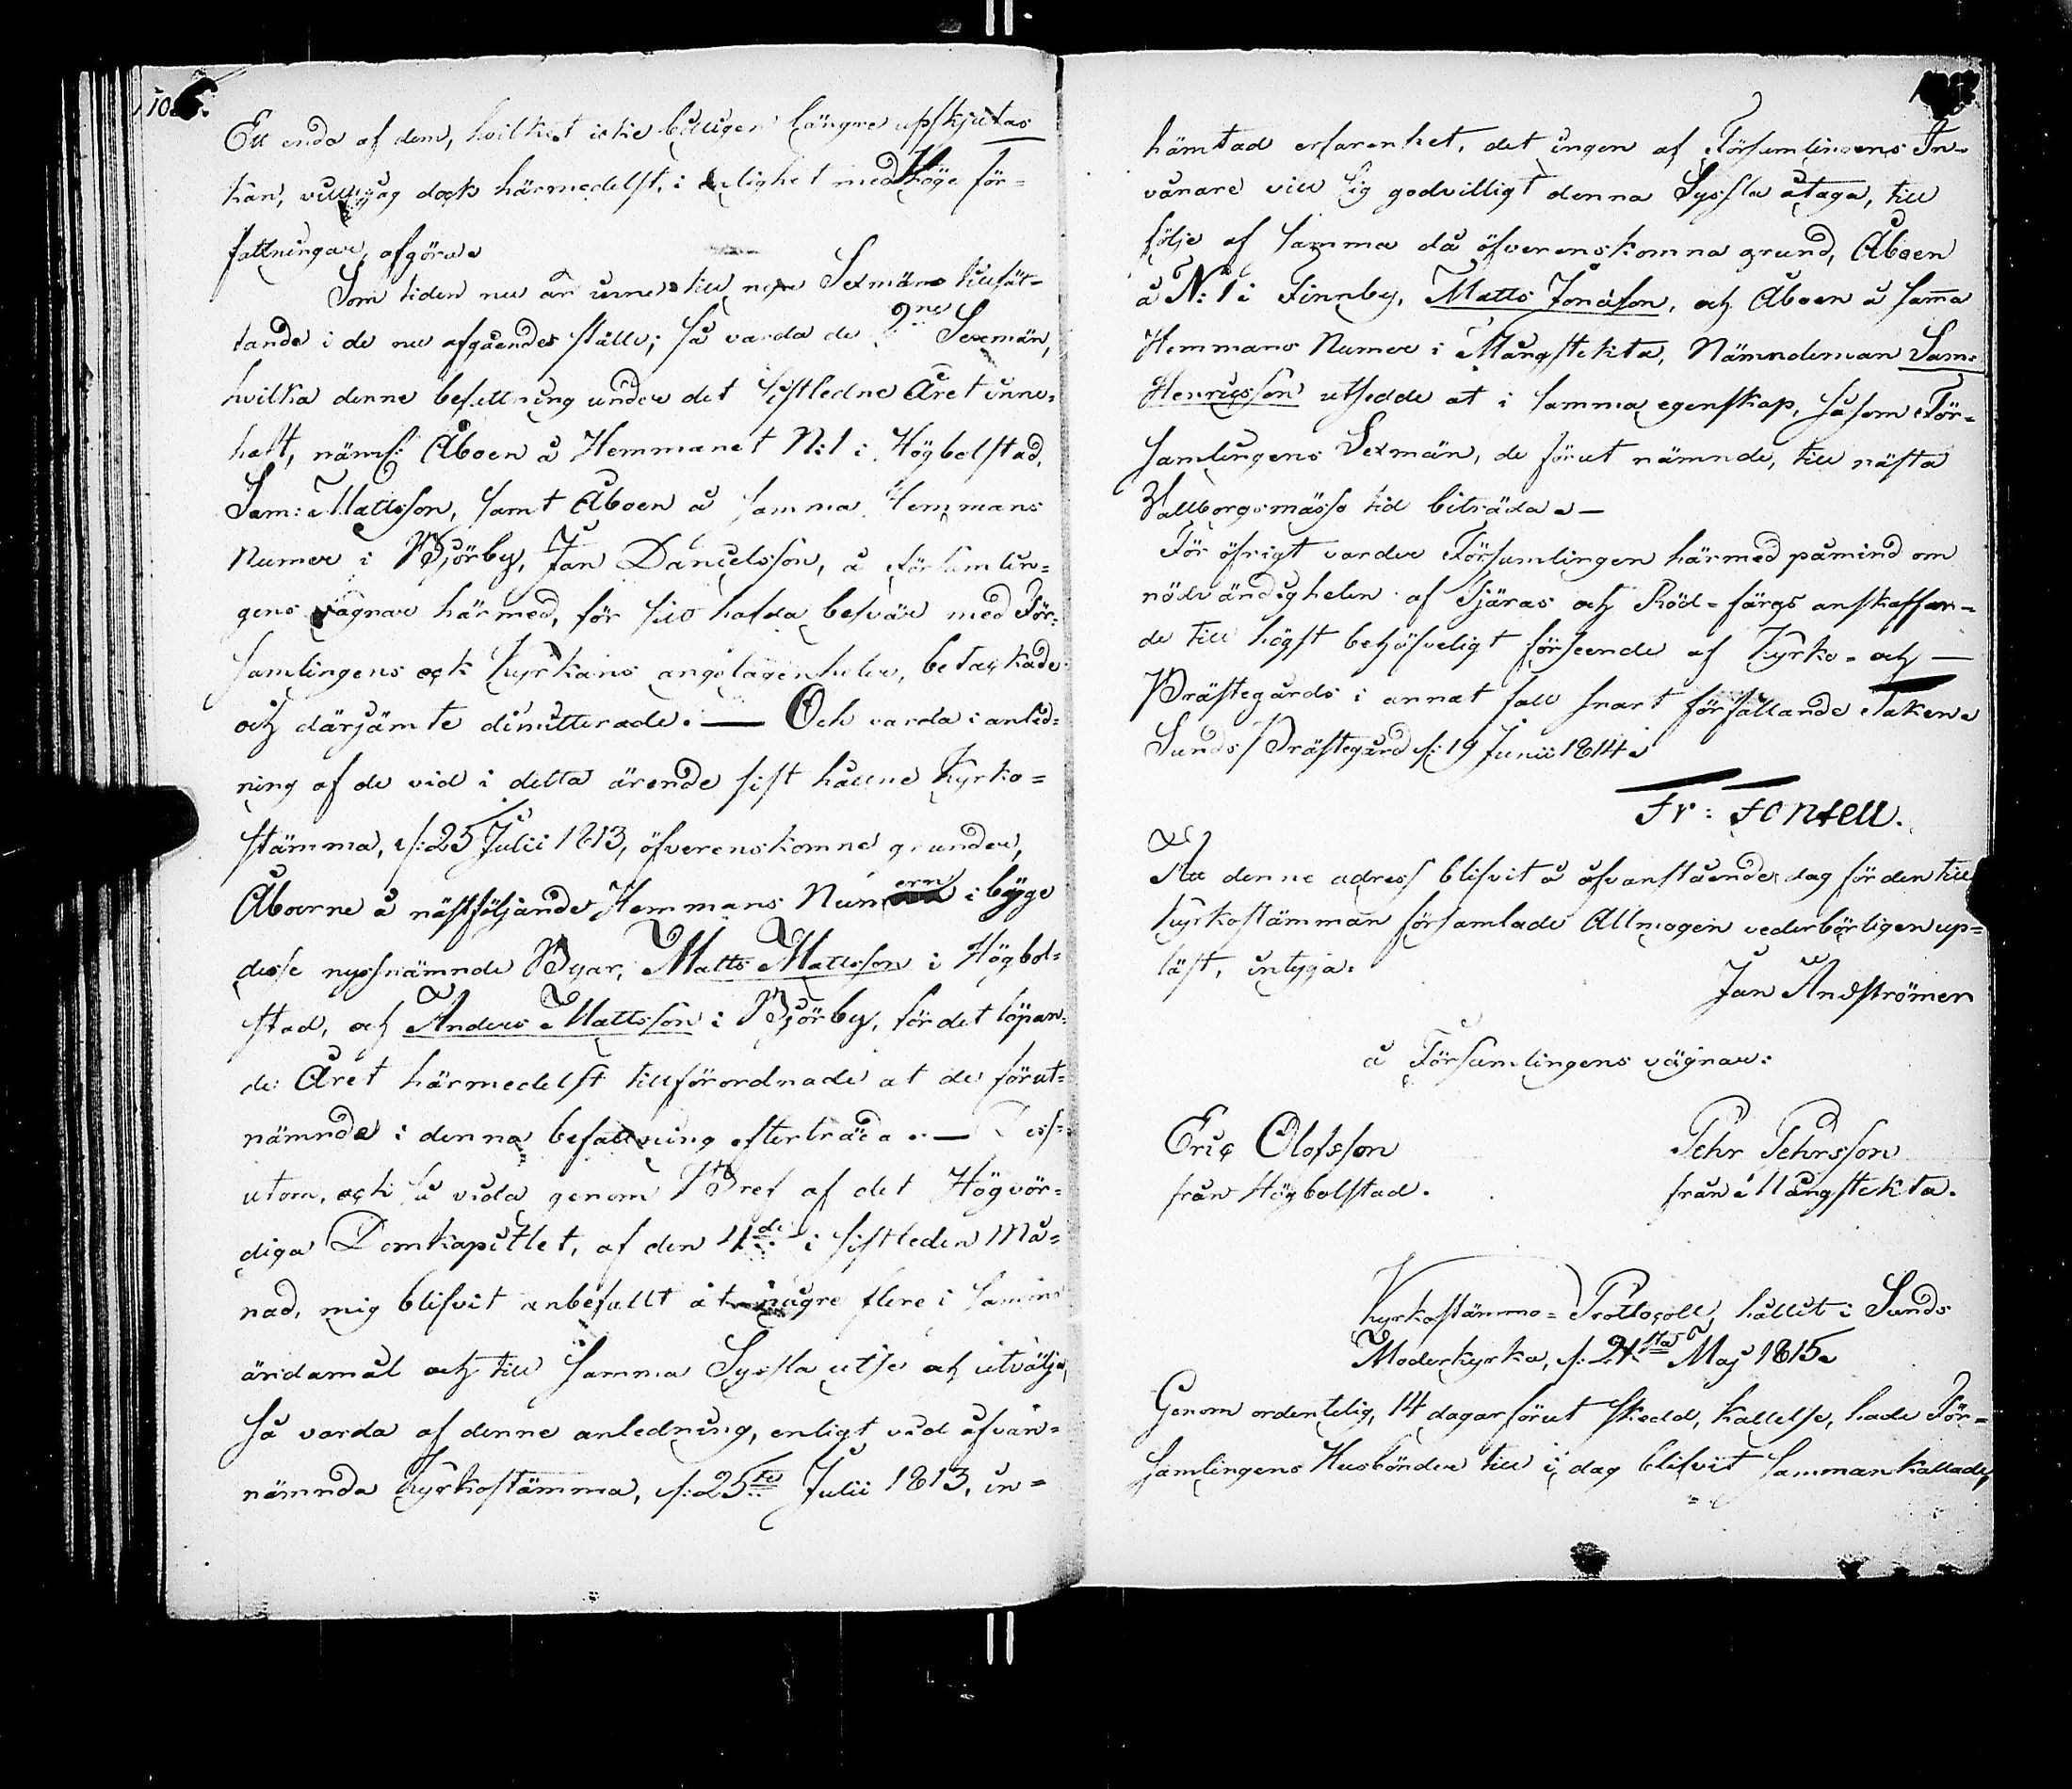 Ett enda af dem, hvilket icke billigen längre upskjutas
kan, vill jag dock härmedelst, i enlighet med Höge för-
fattningar, afgöra.
Som tiden nu är inne till nya Sexmäns tillsät-
tande i de nu afgåendes ställe; så varda de 2ne Sexmän,
hvilka denne befattning under det sistledne Året inne-
haft, nämł: Åboen å Hemmanet N:1 i Högbolstad,
Sam: Mattsson, samt Åboen å samma Hemmans
Numer i Björby, Jan Danielsson, å Församlin-
gens vägnar härmed, för sitt hafda besvär med För-
samlingens ock Kyrkans angelägenheter, betackade
och därjämte dimitterade. — Och varda i anled-
ning af de vid i detta ärende sist hållne Kyrko-
stämma, d: 25 Julii 1813, öfverenskomne grunder,
Åboerne å nästföljande Hemmans Numern i bägge
desse nyssnämnde Byar, Matts Mattsson i Högbol-
stad, och Anders Mattsson i Björby, för det löpan-
de Året härmedelst tillförordnade at de förut-
nämnde i denna befattning efterträda. — Dess-
utom, ock så vida genom Bref af det Högvör-
diga Domkapitlet, af den 4de i sistleden Må-
nad, mig blifvit anbefallt at någre flere i samma
ändamål och till samma Syssla utse och utvälja,
så varda af denne anledning, enligt vid ofvan-
nämnda Kyrkostämma, d: 25te Julii 1813, in-
hämtad erfarenhet, det ingen af Församlingens In-
vånare vill sig godvilligt denna Syssla åtaga, till
följe af samma då öfverenskomna grund, Åboen
å N:1 i Finnby, Matts Jonasson, och Åboen å samma
Hemmans Numer i Mångstekta, Nämndeman Sam:
Henricsson utsedde at i samma egenskap, såsom För-
samlingens Sexmän, de förut nämnde, till nästa
Vallborgsmässo tid biträda. —
För öfrigt varder Församlingen härmed påmind om
nödvändigheten af Tjäras och Röd-färgs anskaffan-
de till högst behöfveligt förseende af Kyrko- och —
Prästegårds i annat fall snart förfallande Taken.
Sunds Prästegård d: 19 Junii 1814.
Fr: Fontell.
At denne adress blifvit å ofvanstående dag för den till
Kyrkostämman församlade Allmogen vederbörligen up-
läst, intyga.
Jan Andströmer
å Församlingens vägnar:
Eric Olofsson Pehr Pehrsson
från Högbolstad. från Mångstekta.
Kyrkostämmo-Protocoll, hållit i Sunds
Moderkyrka, d: 21sta Maj 1815.
Genom ordentelig, 14 dagar förut skedd, kallelse, hade För-
samlingens Husbönder till i dag blifvit sammankallade,